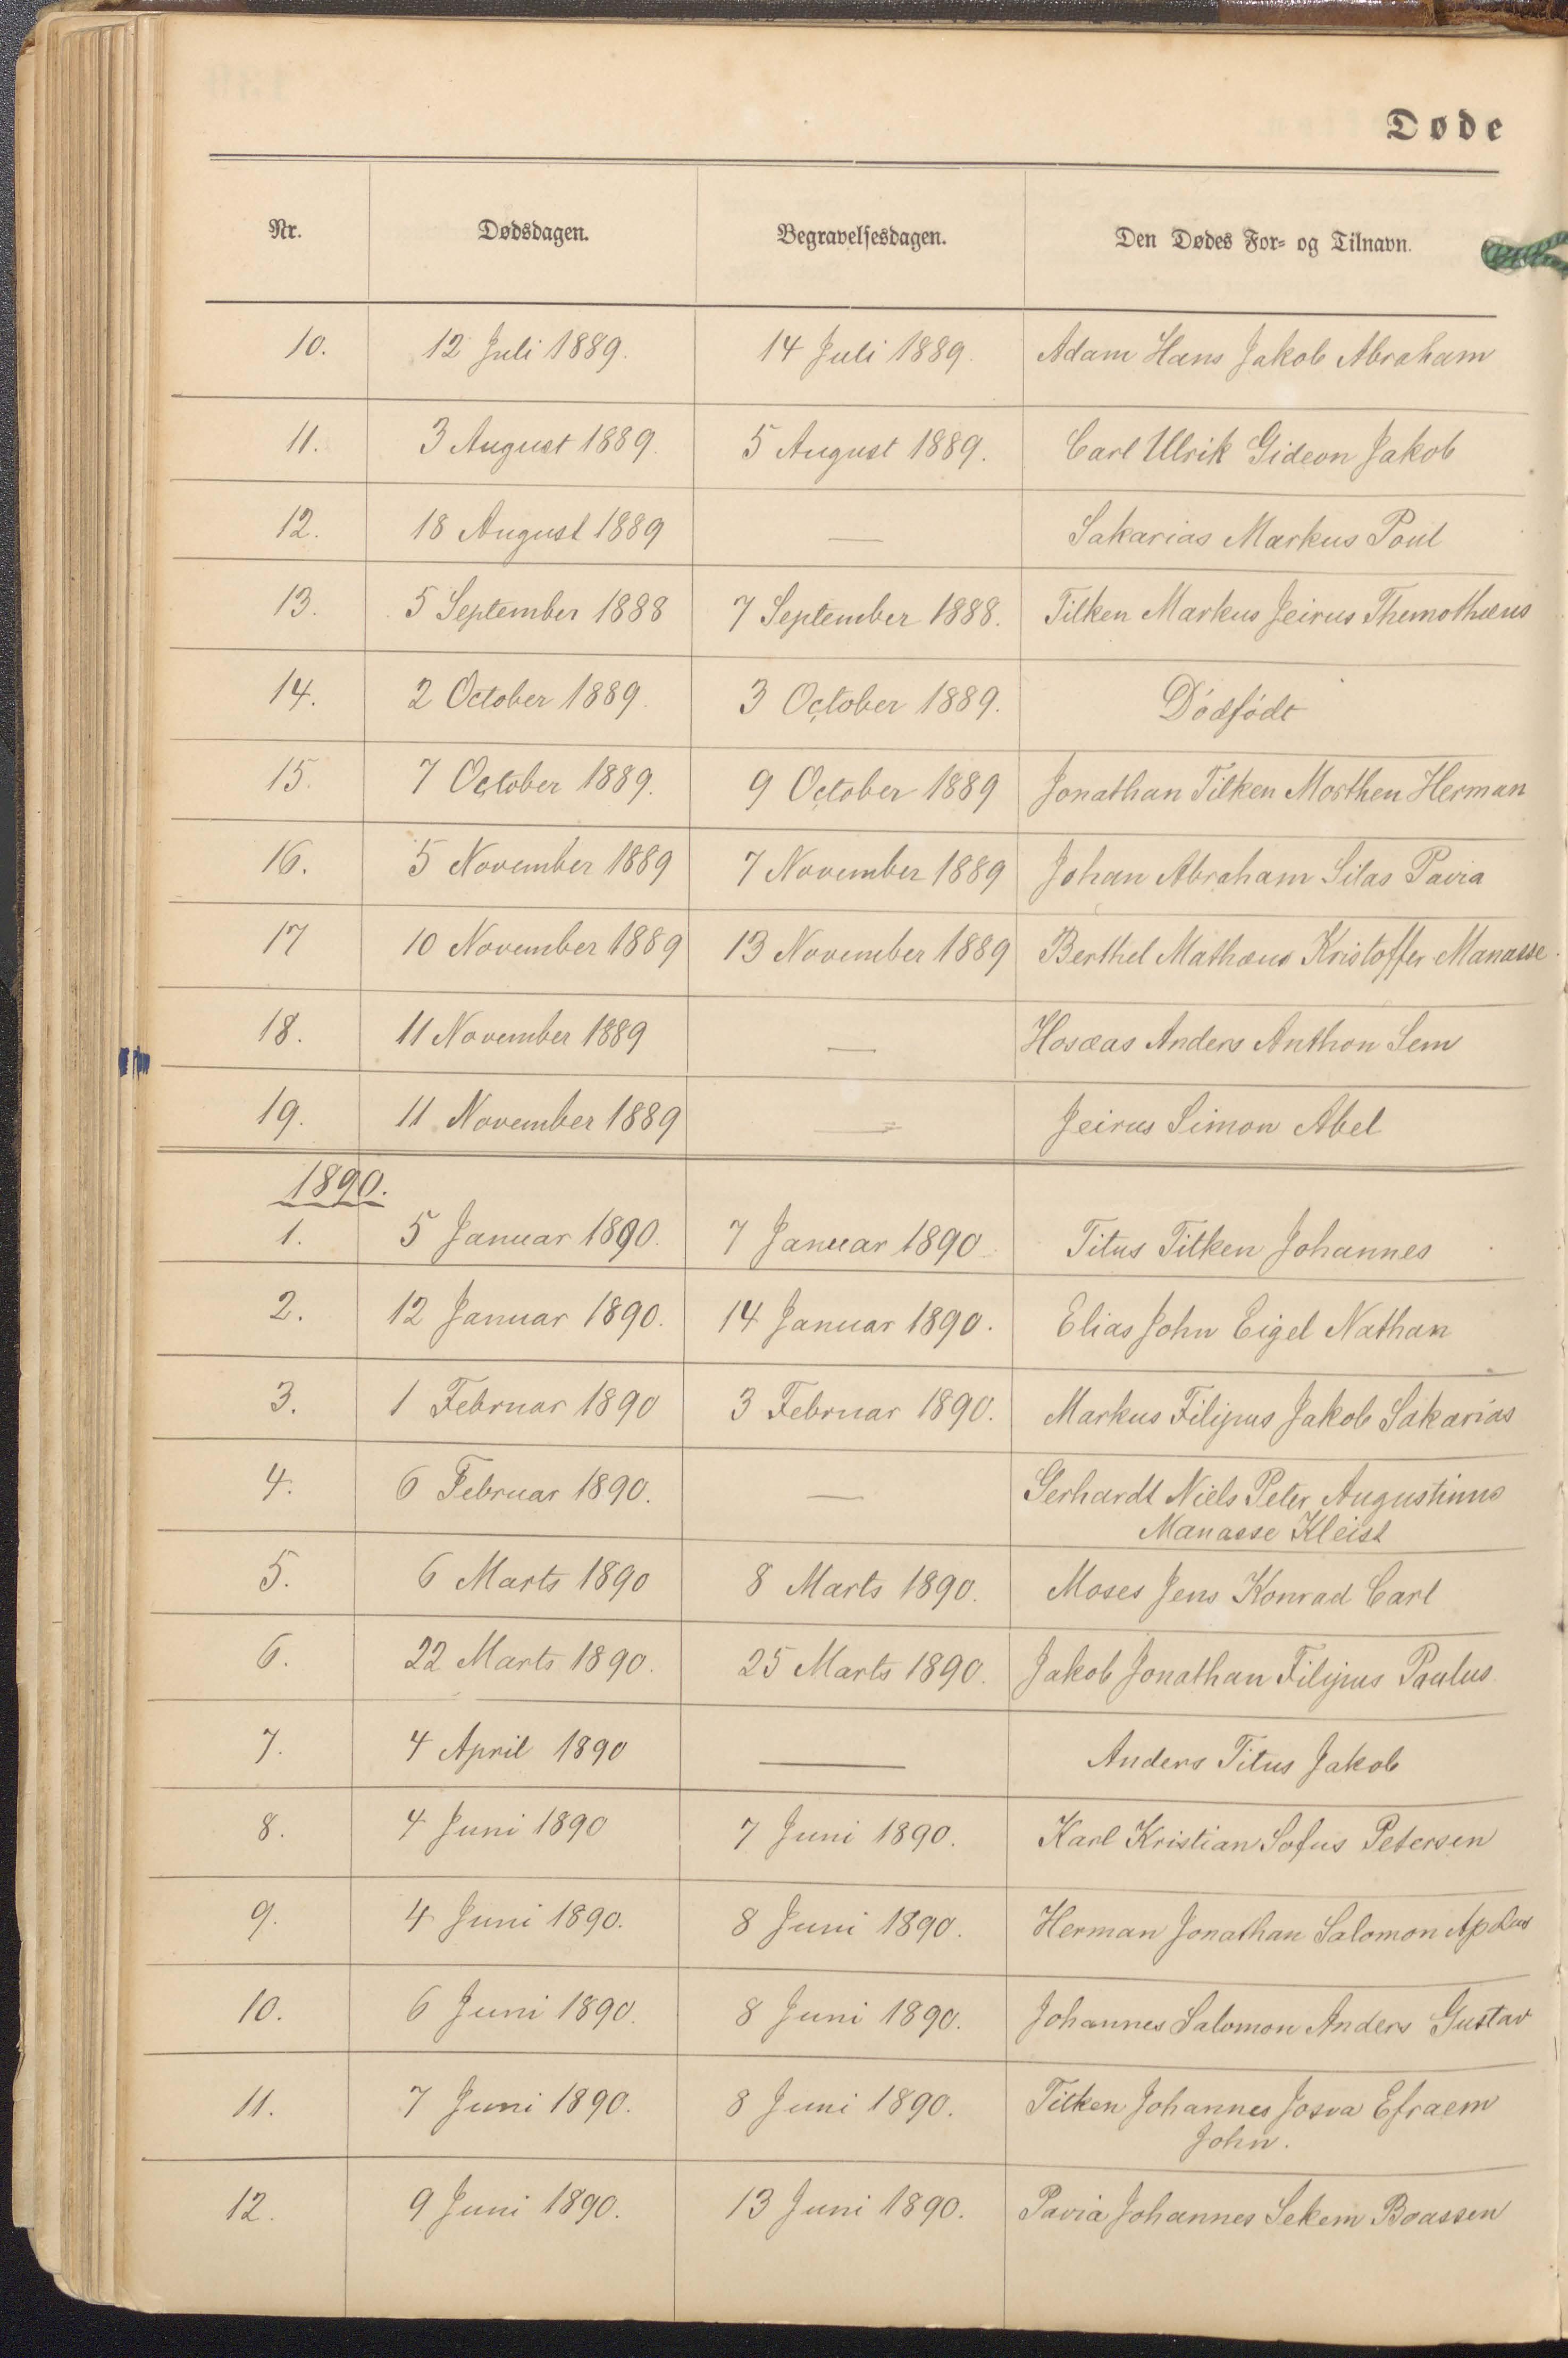 Døde
Nr. Dødsdagen. Begravelsesdagen. Den Dødes For- og Tilnavn.
10. 12 Juli 1889. 14 Juli 1889. Adam Hans Jakob Abraham
11. 3 August 1889. 5 August 1889. Carl Ulrik Gideon Jakob
12. 18 August 1889 — Sakarias Markus Poul
13. 5 September 1888 7 September 1888. Tilken Markus Jeirus Themothæus
14. 2 October 1889. 3 October 1889. Dódfódt
15. 7 October 1889. 9 October 1889 Jonathan Tilken Morthen Herman
16. 5 November 1889 7 November 1889 Johan Abraham Silas Pavia
17 10 November 1889 13 November 1889 Berthel Mathæus Kristoffer Manasse.
18. 11 November 1889 — Hosæas Anders Anthon Sem
19. 11 November 1889 — Jeirus Simon Abel
1890.
1. 5 Januar 1890. 7 Januar 1890. Titus Tilken Johannes
2. 12 Januar 1890. 14 Januar 1890. Elias John Eigel Nathan
3. 1 Februar 1890 3 Februar 1890. Markus Filipus Jakob Sakarias
4. 6 Februar 1890. — Gerhardt Niels Peter Augustinus
Manasse Kleist
5. 6 Marts 1890 8 Marts 1890. Moses Jens Konrad Carl
6. 22 Marts 1890. 25 Marts 1890. Jakob Jonathan Filipus Paulus
7. 4 April 1890 — Anders Titus Jakob
8. 4 Juni 1890 7 Juni 1890. Karl Kristian Sofus Petersen
9. 4 Juni 1890. 8 Juni 1890. Herman Jonathan Salomon Apolus
10. 6 Juni 1890. 8 Juni 1890. Johannes Salomon Anders Gustav
11. 7 Juni 1890. 8 Juni 1890. Tilken Johannes Josva Efraem
John.
12. 9 Juni 1890. 13 Juni 1890. Pavia Johannes Sekem Boassen